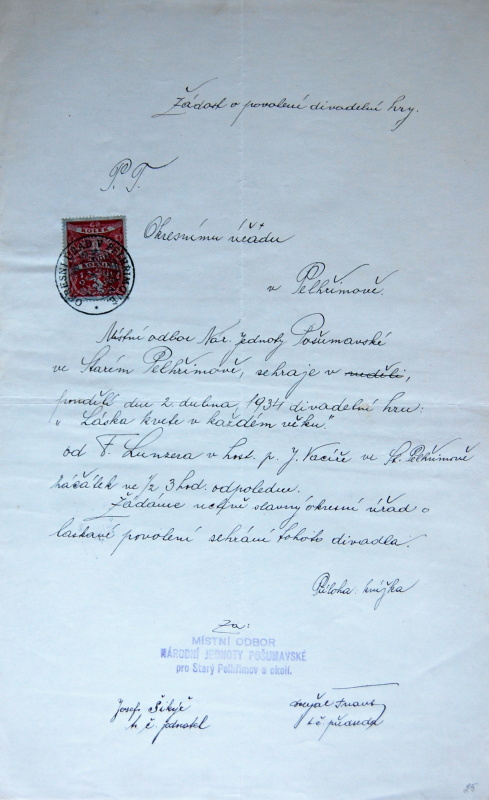 Žádost o povolení divadelní hry.
P. T.
Okresnímu úřadu
v Pelhřimově.
Místní odbor Nár. Jednoty Pošumavské
ve Starém Pelhřimově, sehraje v neděli,
pondělí dne 2. dubna 1934 divadelní hru:
"Láska kvete v každém věku"
od F. Lunzera v host. p. J. Vacíře ve St. Pelhřimově
začátek ve 1/2 3 hod. odpoledne.
Žádáme uctivě slavný okresní úřad o
laskavé povolení sehrání tohoto divadla.
Příloha: knížka
Za:
MÍSTNÍ ODBOR
NÁRODNÍ JEDNOTY POŠUMAVSKÉ
pro Starý Pelhřimov a okolí.
Josef
t. č. jednatel
t. č. předseda
25